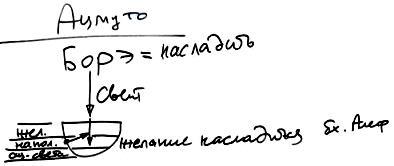 Ацмуто
Борэ = насладить
свет
жел.
напол.
ощ. света
желание насладиться Бх. Алеф